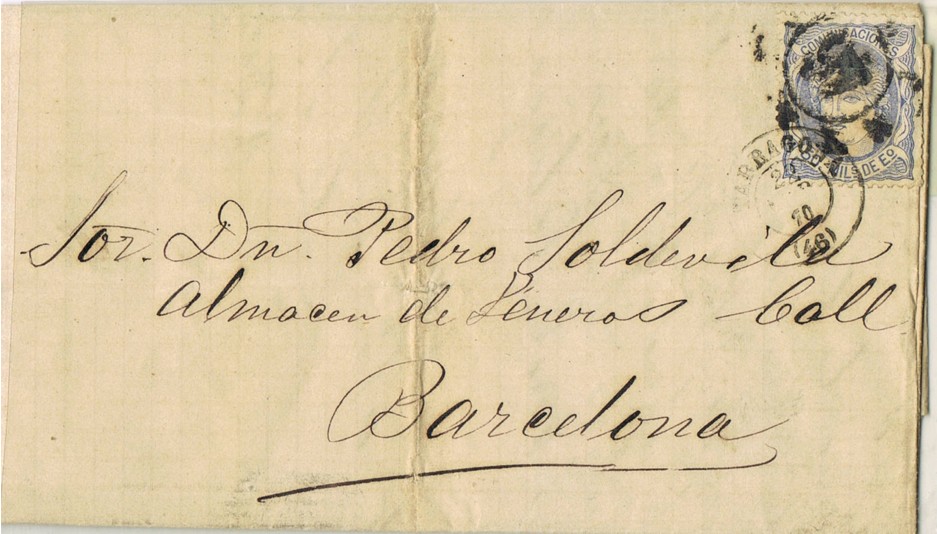 COMUNICACIONES
50 MILS DE EO.
TARRAGONA
70
(46)
Sor. Dn. Pedro Soldevila
Almacen de Géneros Call
Barcelona